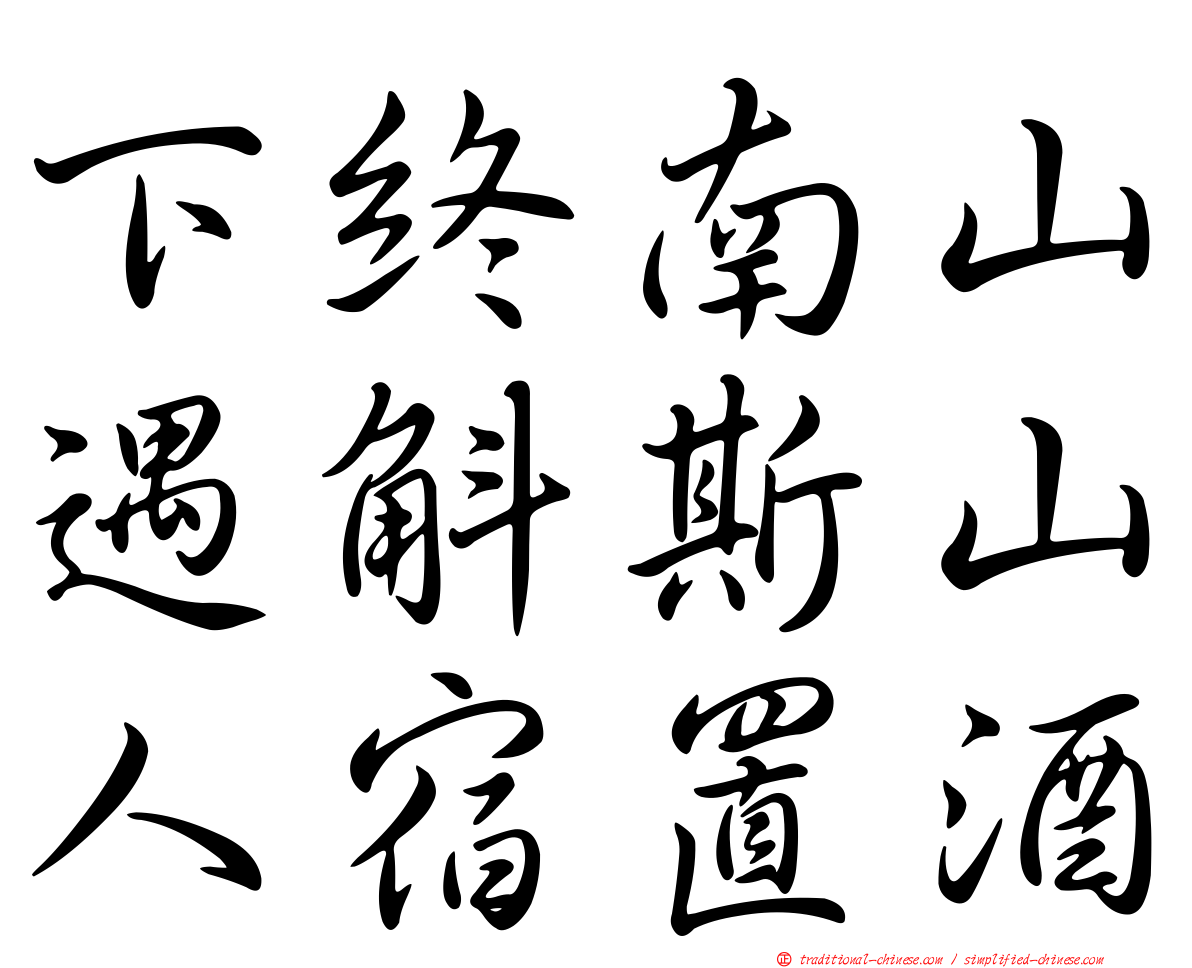 下终南山
遇斛斯山
人宿置酒
㊣ traditional-chinese.com / simplified-chinese.com